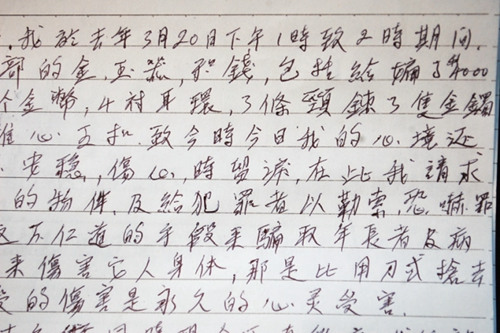 我於去年3月20日下午1時致2時期間.
部的金,玉器,和錢,包括給騙了$4000
个金幣,4対耳環,3條頸鍊3隻金鐲
心玉扣.致今時今日我的心境还
安稳,傷心,時留淚,在此我請求
的物件,及給犯罪者以勒索,恐嚇罪
不仁道的手段来騙取年長者及病
来傷害它人身体,那是比用刀或搶去
的傷害是永久的心灵受害.